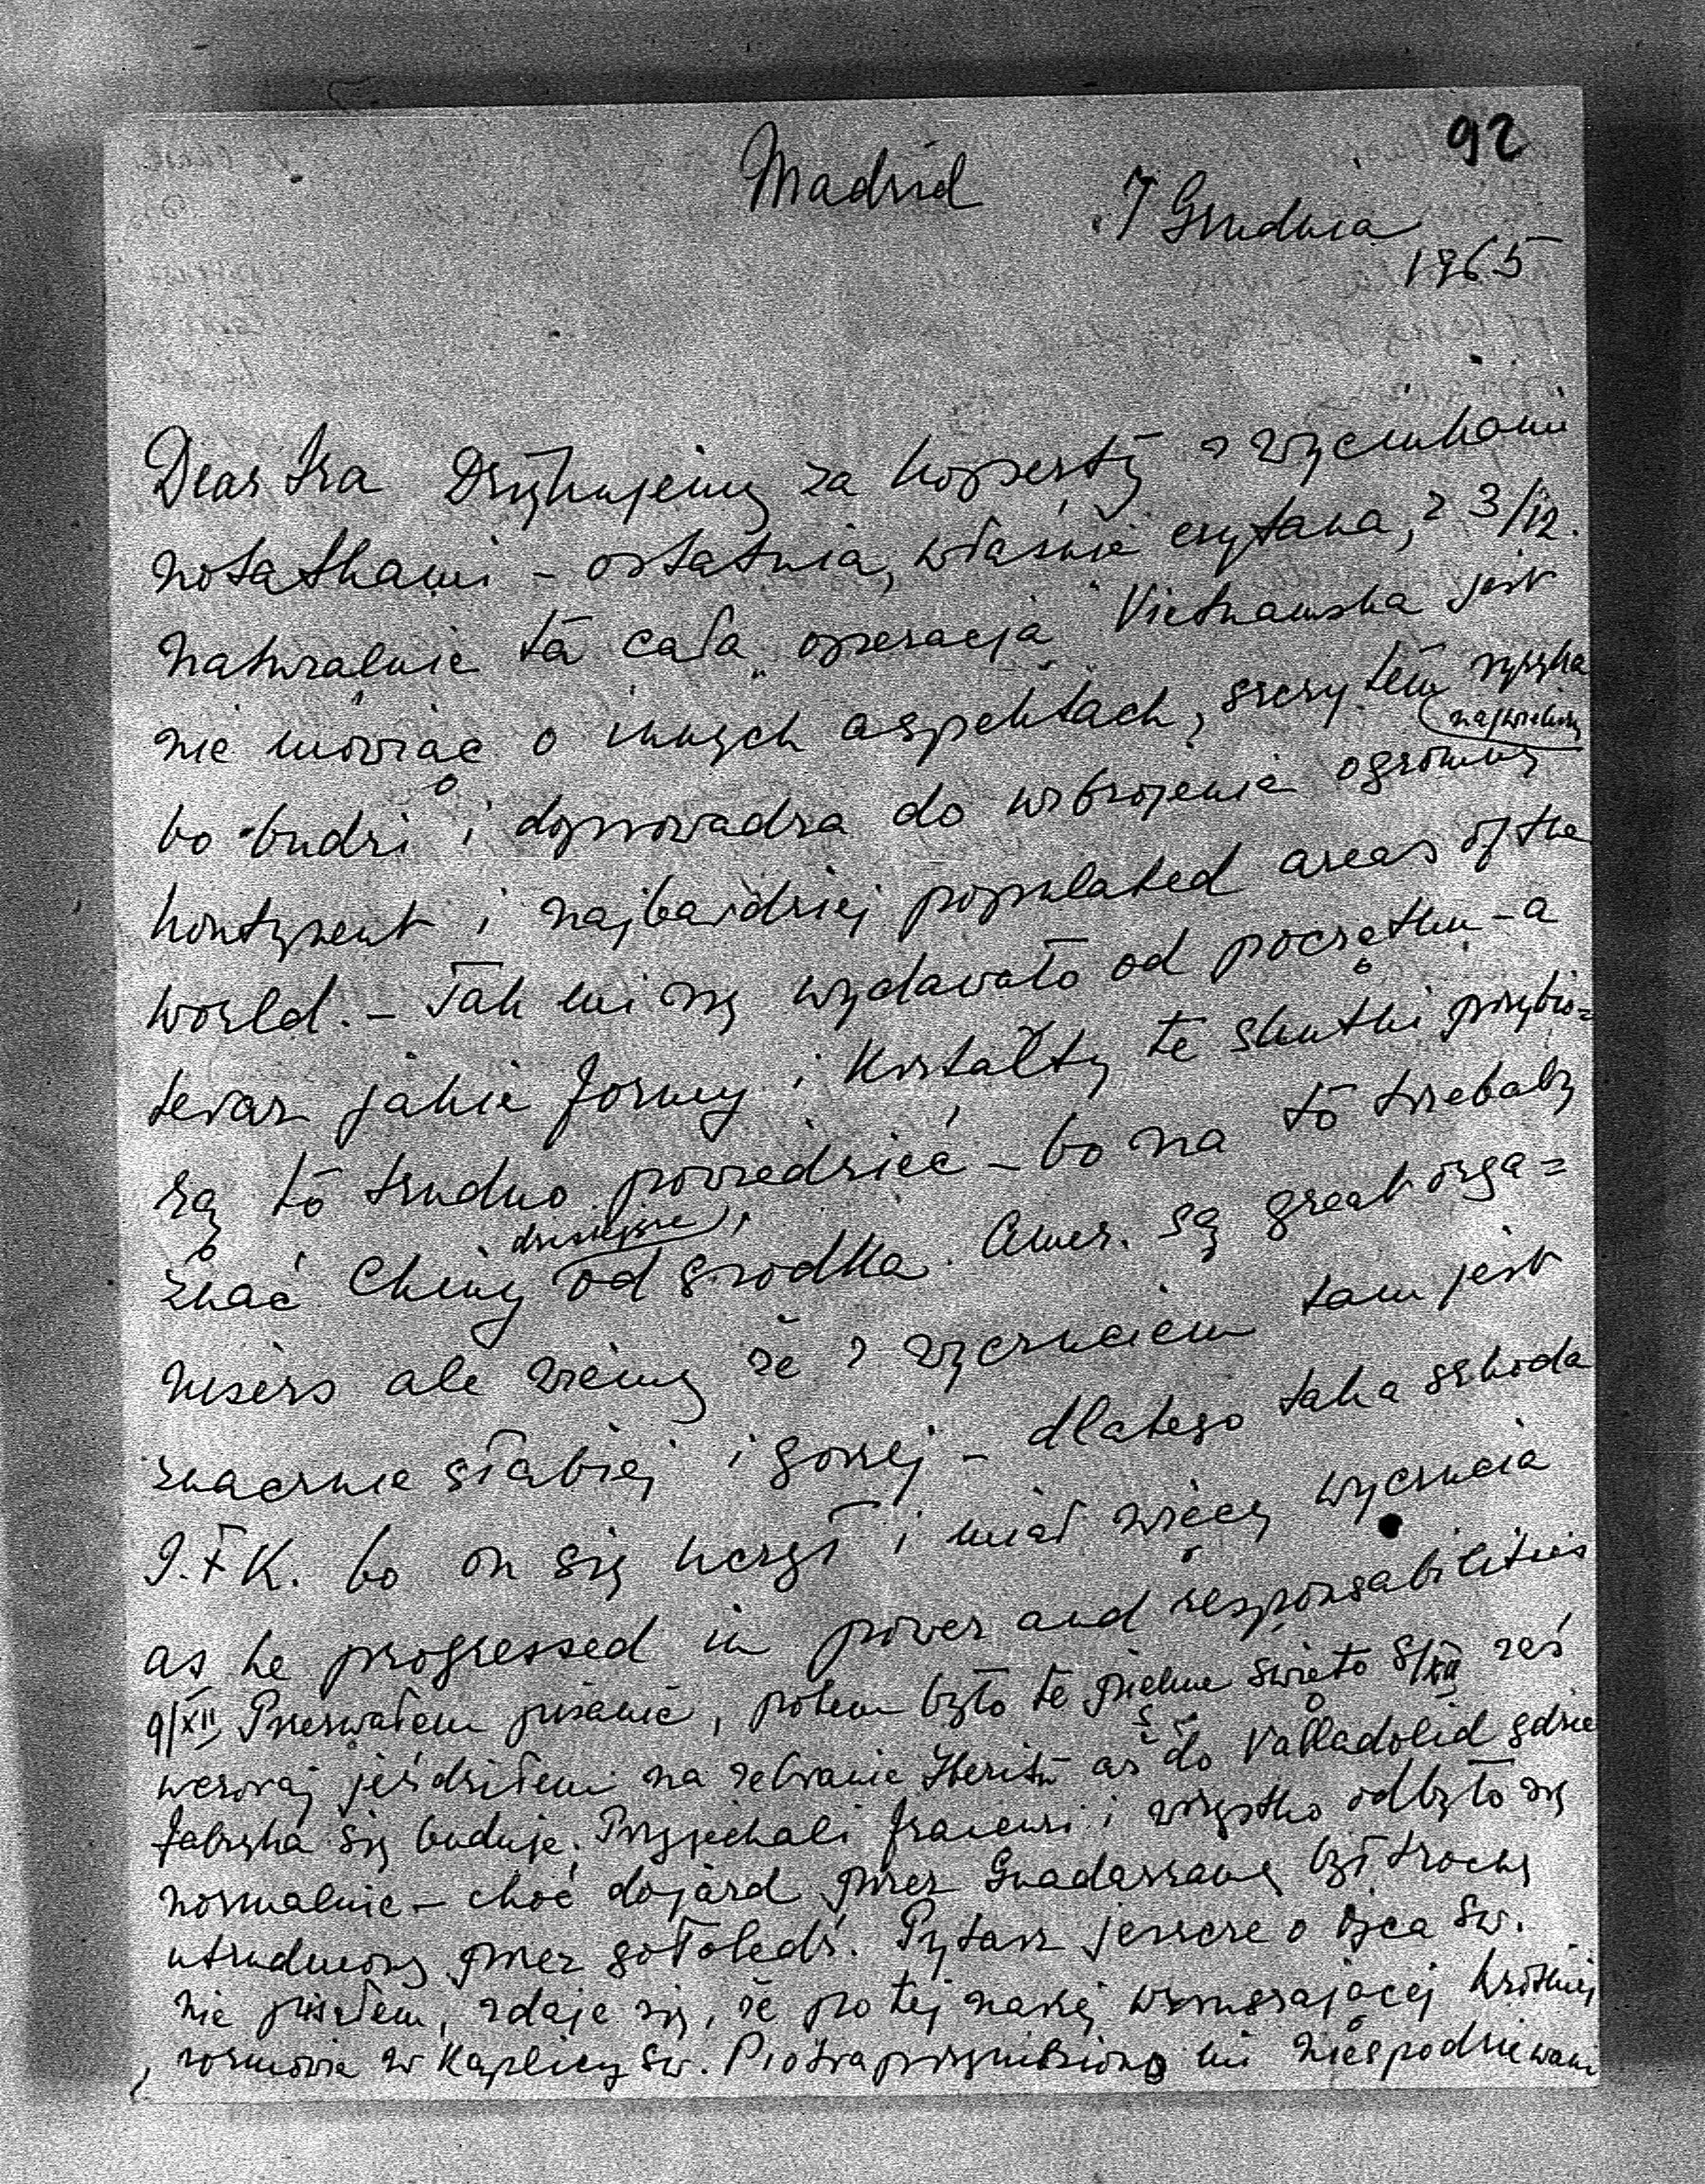 92
Madrid
7 Grudnia
1965
Dear Ira Dziękujemy za koperty z wycinkami
notatkami - ostatnia, właśnie czytana, z 3/12.
Naturalnie ta cała "operacja" Vietnamska jest
nie mówiąc o innych aspektach, szczytem ryzyka
(największy
bo budzi i doprowadza do uzbrojenia ogromny
kontynent i najbardziej populated areas of the
world. - Tak mi się wydawało od początku - a
teraz jakie formy i kształty te skutki przybio=
rą to trudno powiedzieć - bo na to trzebaby
dzisiejsze)
znać Chiny od środka. Amer. są great orga=
nisers ale wiemy że z wyczuciem tam jest
znacznie słabiej i gorzej - dlatego taka szkoda
J.F.K. bo on się uczył i miał więcej wyczucia
as he progressed in power and responsabilities
9/XII Przerwałem pisanie, potem było te piękne święto 8/XII zaś
wczoraj jeździłem na zebranie Iberit'u aż do Valladolid gdzie
fabryka się buduje. Przyjechali francuzi i wszystko odbyło się
normalnie - choć dojazd przez Guadarramę był trochę
utrudniony przez gołoledź. Pytasz jeszcze o Ojca Św.
nie pisałem, zdaje się, że po tej naszej wzruszającej krótkiej
rozmowie w Kaplicy Św. Piotra przyniesiono mi niespodziewani